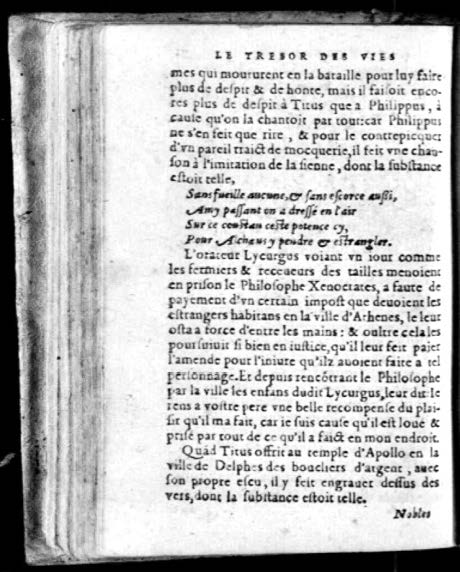 LE TRESOR DES VIES
mes qui moururent en la bataille pour luy faire
plus de despit & de honte, mais il faisoit enco-
res plus de despit à Titus que a Philippus, à
cause qu'on la chantoit par tout: car Philippus
ne s'en feit que rire, & pour le contrepicquer
d'vn pareil traict de mocquerie, il feit vne chan-
son à l'imitation de la sienne, dont la substance
estoit telle,
Sans fueille aucune, & sans escorce aussi,
Amy passant on a dressé en l'air
Sur ce constau ceste potence cy,
Pour Alchaus y pendre & estrangler.
L'orateur Lycurgus voiant vn iour comme
les fermiers & receueurs des tailles menoient
en prison le Philosophe Xenocrates, a faute de
payement d'vn certain impost que deuoient les
estrangers habitans en la ville d'Athenes, le leur
osta a force d'entre les mains: & oultre cela les
poursuiuit si bien en iustice, qu'il leur feit paier
l'amende pour l'iniure qu'ilz auoient faite a tel
personnage. Et depuis rencõtrant le Philosophe
par la ville les enfans dudit Lycurgus, leur dit Ie
rens a vostre pere vne belle recompense du plai-
sir qu'il m'a fait, car ie suis cause qu'il est loué &
prisé par tout de ce qu'il a faict en mon endroit.
Quãd Titus offrit au temple d'Apollo en la
ville de Delphes des boucliers d'argent, auec
son propre escu, il y feit engrauer dessus des
vers, dont la substance estoit telle.
Nobles